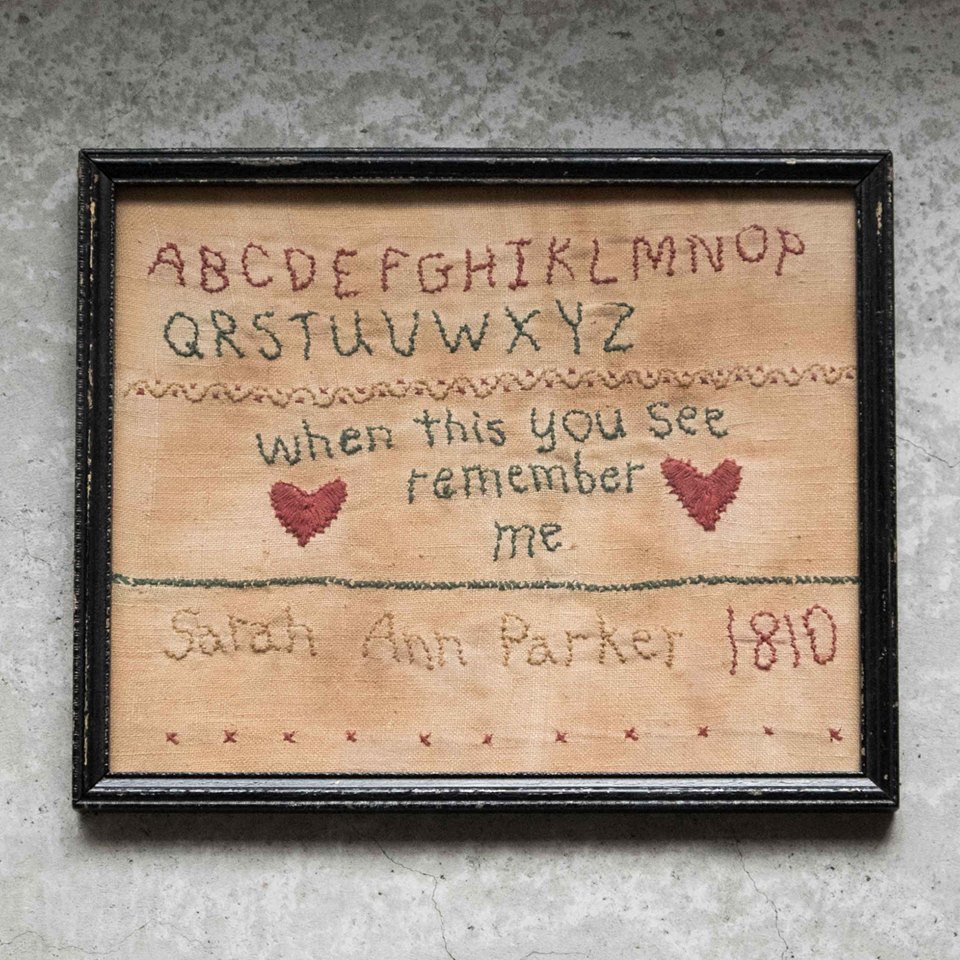 ABCDEFGHIKLMNOP
QRSTUVWXYZ
when this you see
remember
me
Sarah Ann Parker 1810